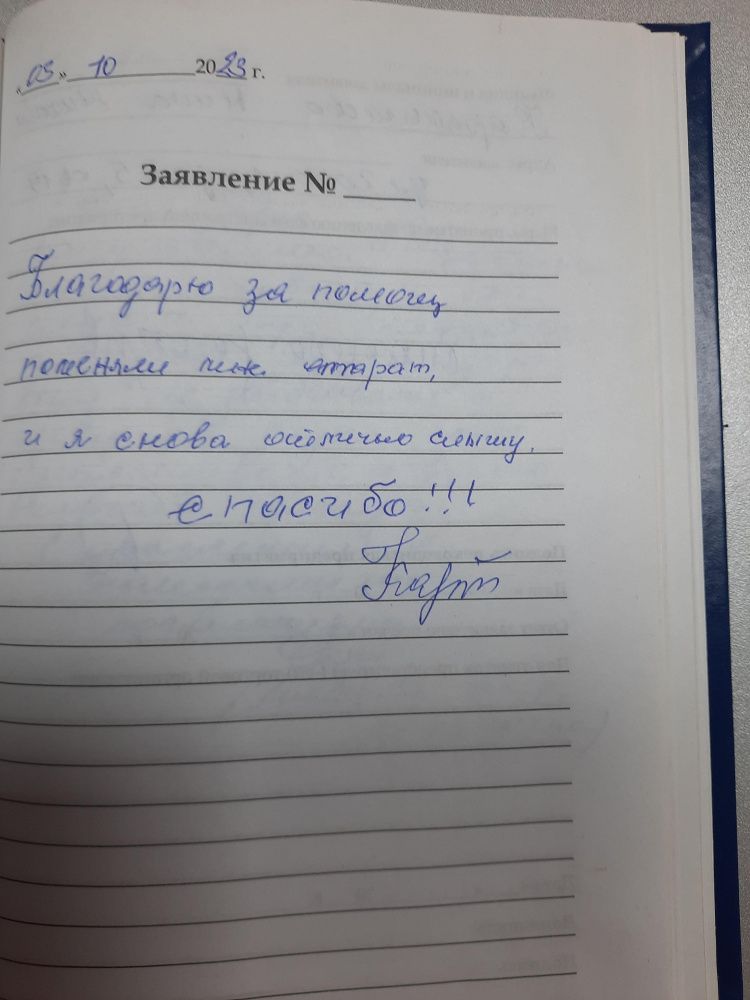 «03» 10 2023 г.
Заявление №
Благодарю за помощь
поменяли мне аппарат,
и я снова отлично слышу.
Спасибо!!!